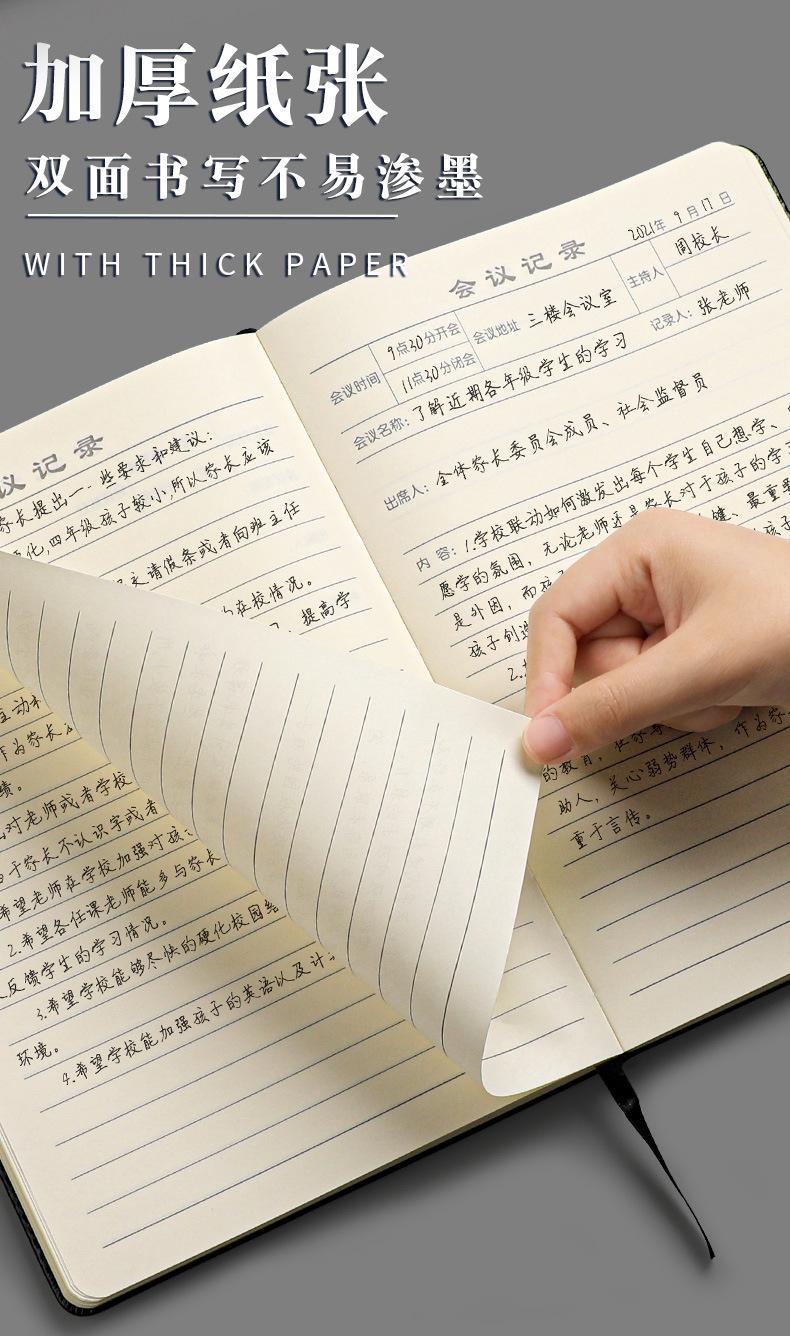 加厚纸张
双面书写不易渗墨
WITH THICK PAPER
会议记录
2021年 9月17日
会议时间
9点30分开会
11点30分闭会
会议地址 三楼会议室
主持人
周校长
会议名称：了解近期各年级学生的学习
记录人：张老师
出席人：全体家长委员会成员、社会监督员
内 容：1.学校联动如何激发出每个学生自己想学、
愿学的氛围，无论老师还是家长对于孩子的学习
是外因，而孩
孩子创造
2.
的教育，在家
助人，关心弱势群体，作为家
重于言传。
议记录
家长提出一些要求和建议：
化,四年级孩子较小,所以家长应该
请假条或者向班主任
在校情况。
提高学
主动
作为家长
绩。
对老师或者学校
于家长不认识字或者
希望老师在学校加强对孩
2.希望各任课老师能多与家长
反馈学生的学习情况。
3.希望学校能够尽快的硬化校园
环境。
4.希望学校能加强孩子的英语以及计